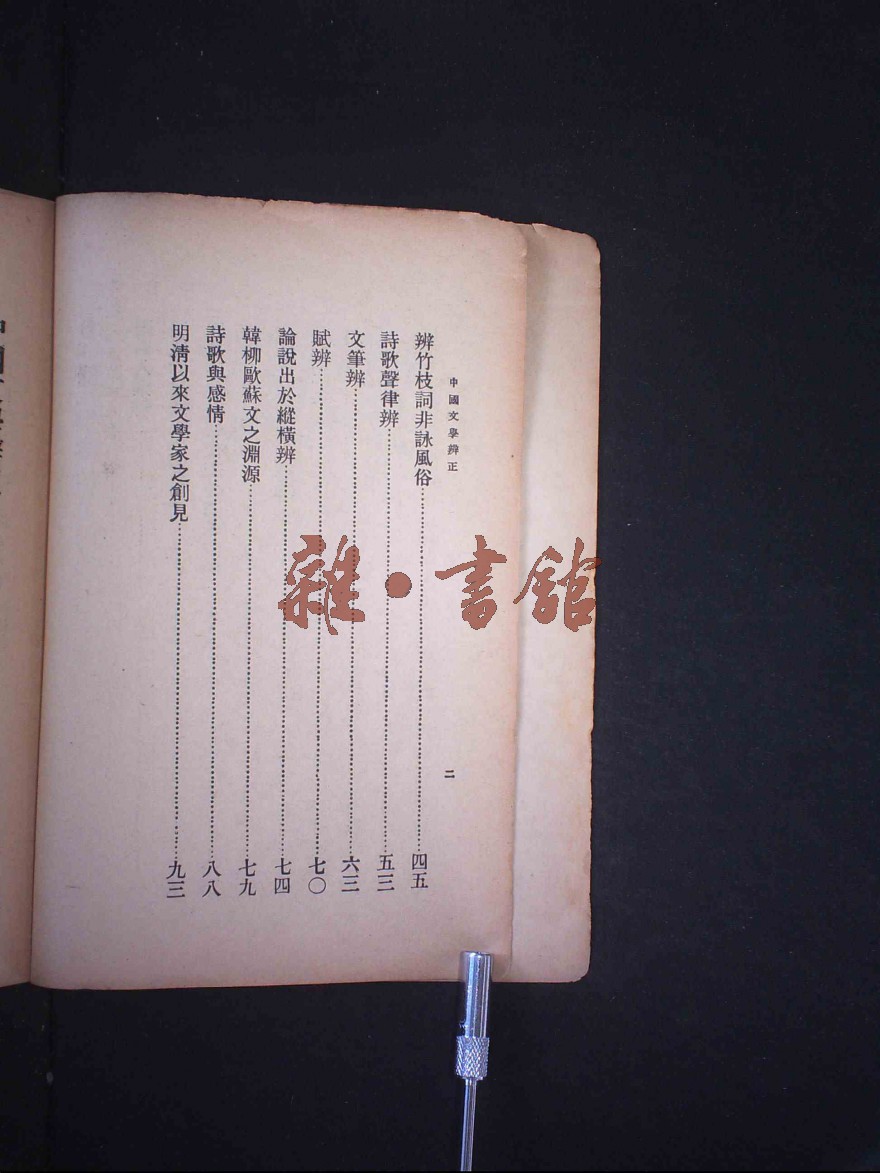 中國文學辨正
二
辨竹枝詞非詠風俗……四五
詩歌聲律辨……五三
文筆辨……六三
賦辨……七〇
論說出於縱橫辨……七四
韓柳歐蘇文之淵源……七九
詩歌與感情……八八
明清以來文學家之創見……九三
雜·書館